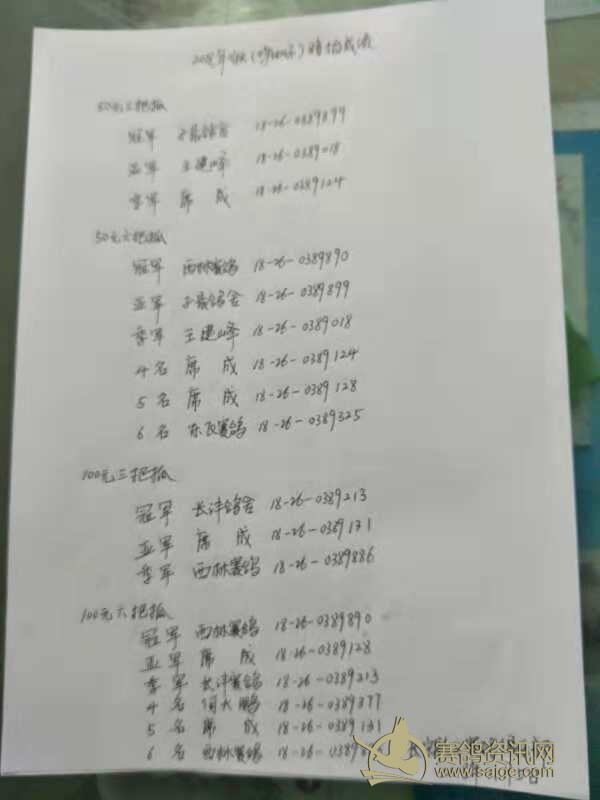 50元三把抓
冠军 子晨鸽舍 18-26-0389899
亚军 王建峰 18-26-0389018
季军 席成 18-26-0389124
50元六把抓
冠军 西林赛鸽 18-26-0389890
亚军 子晨鸽舍 18-26-0389899
季军 王建峰 18-26-0389018
4名 席成 18-26-0389124
5名 席成 18-26-0389128
6名 东辰赛鸽 18-26-0389325
100元三把抓
冠军 长沣鸽舍 18-26-0389213
亚军 席成 18-26-0389131
季军 西林赛鸽 18-26-0389886
100元六把抓
冠军 西林赛鸽 18-26-0389890
亚军 席成 18-26-0389128
季军 长沣赛鸽 18-26-0389213
4名 何大鹏 18-26-0389377
5名 席成 18-26-0389131
6名 西林赛鸽 18-26-0389
赛鸽资讯网
www.saige.com